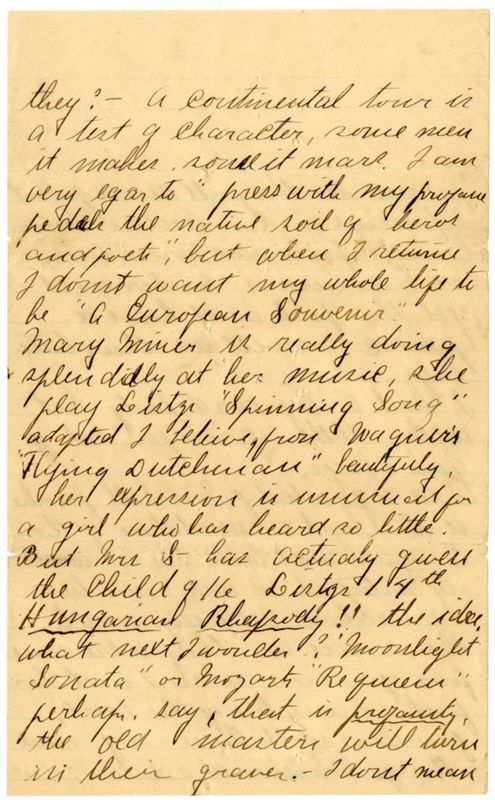 they? - A continental tour is
a test of character, some men
it makes. some it mars. I am
very egar to "press with my profane
pedals the native soil of heros
and poets", but when I returne
I dont want my whole life to
be "A European Souvenir"
Mary Miner is really doing
splendidly at her music, she
play Listzs "Spinning Song"
adapted I believe, from Wagner's
"Flying Dutchman" beautifuly,
her expression is unusual for
a girl who has heard so little.
But Mrs S- has actualy given
the child of 16 Listzs 14th
Hungarian Rhapsody!! the idea,
what next I wonder? "Moonlight
Sonata" or Mozarts "Requiem"
perhaps. say, that is profanity,
the old masters will turn
in their graves. - I dont mean